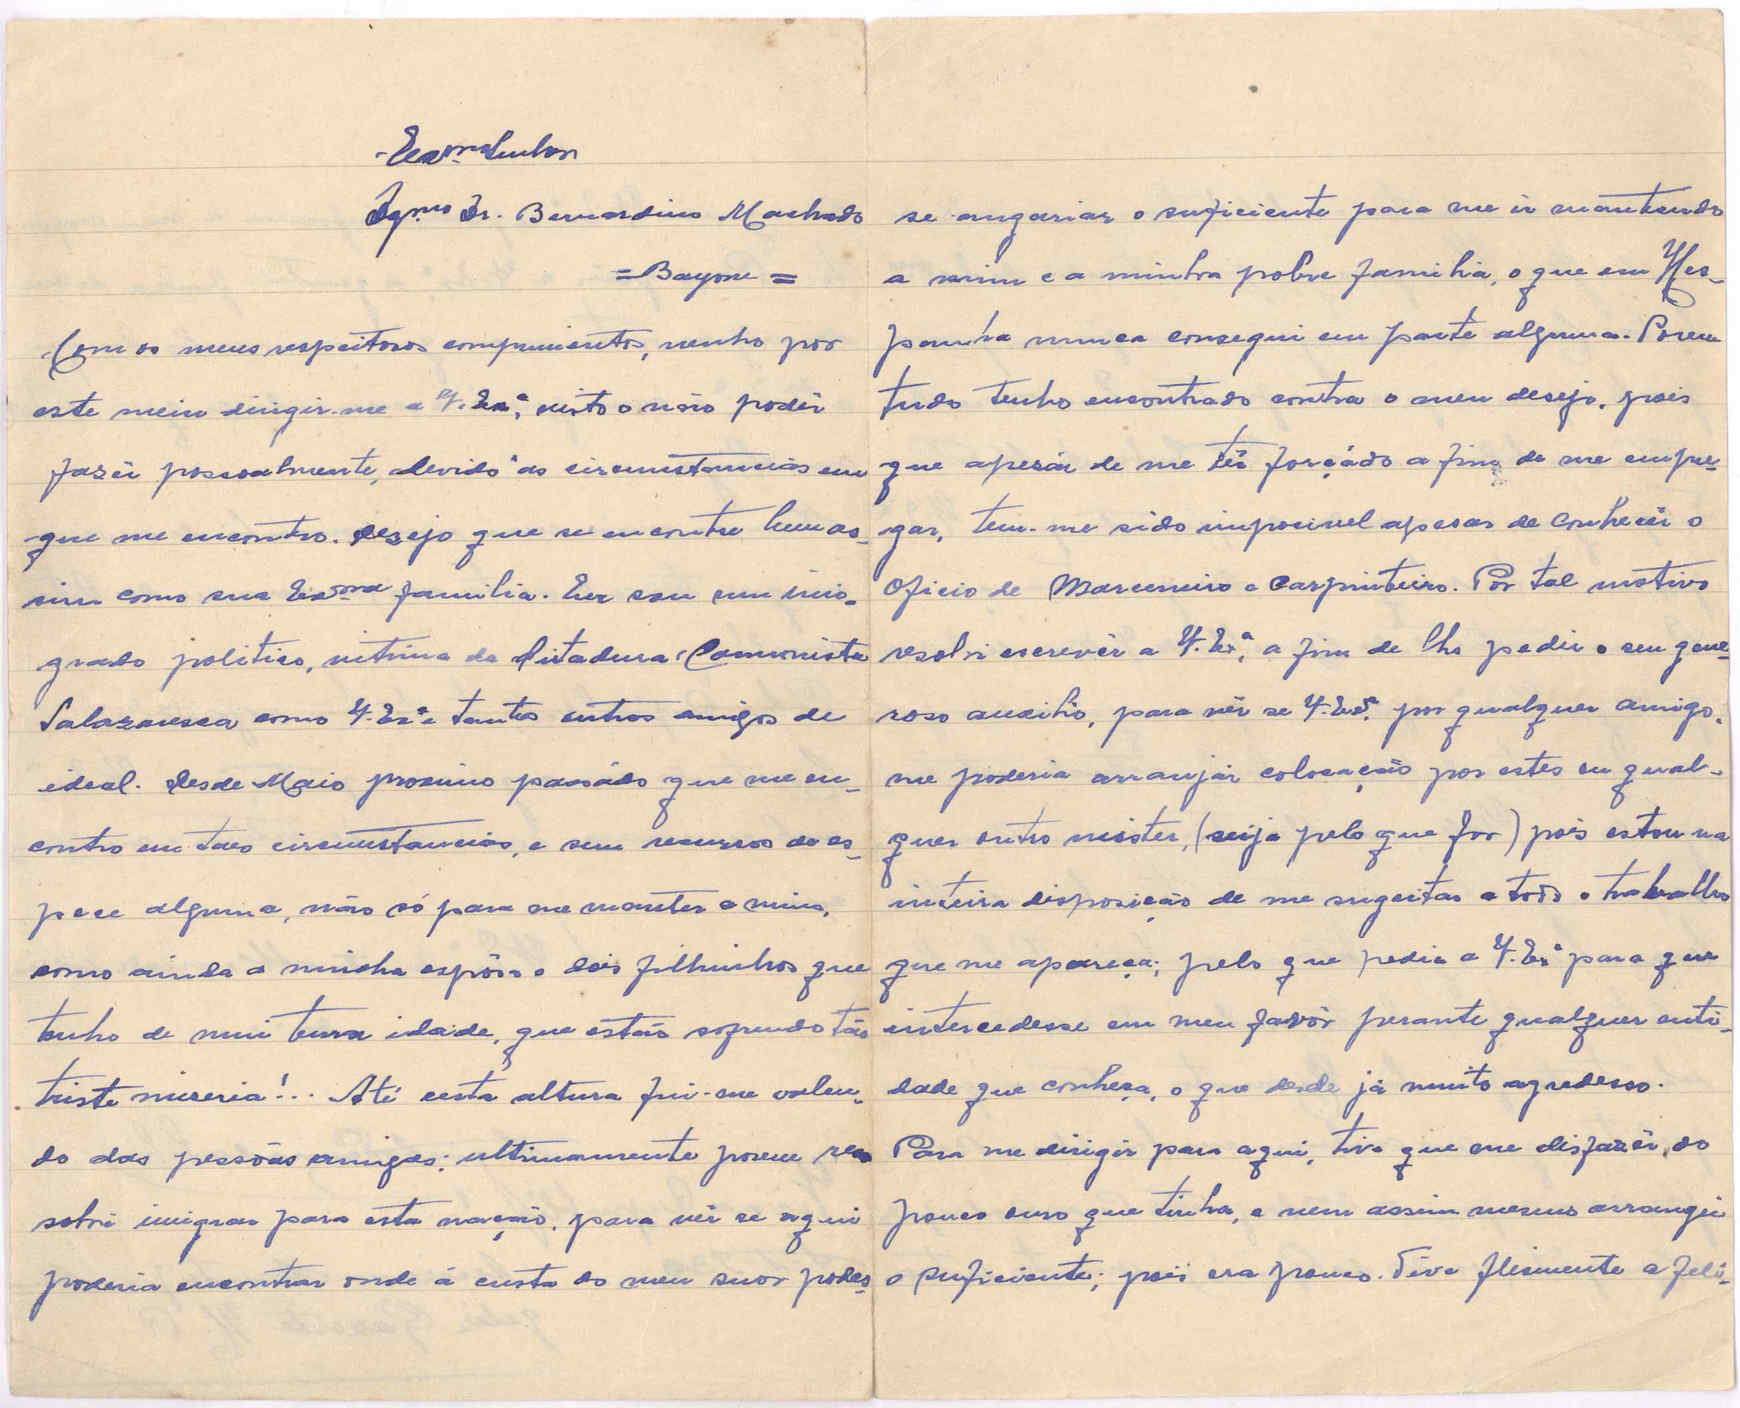 Exmo Senhor
Dgmo Dr. Bernardino Machado
= Bayone =
Com os meus respeitosos comprimentos, venho por
este meiu dirigir-me a V. Exª, visto o não podêr
fazêr pessoalmente, devido ás circumstancias em
que me encontro. Desejo que se encontre bem as-
sim como sua Exma familia. Eu sou um imi-
grado politico, vitima da Ditadura Comunista
Salazaresca como V. Exª e tantos outros amigos de
ideal. Desde Maio proximo passádo que me en-
contro em taes circumstancias, e sem recursos de es-
pece alguma, não só para me manter a mim,
como ainda a minha espôsa e dois filhinhos que
tenho de mui tenra idade, que estão sofrendo tão
triste miseria!... Até esta altura fui-me valen-
do das pessôas amigas; ultimamente porem re-
solvi imigrar para esta nação, para vêr se aqui
poderia encontrar onde á custa do meu suor podes-
se angariar o suficiente para me ir mantendo
a mim e a minha pobre familia, o que em Hes-
panha nunca consegui em parte alguma. Porem
tudo tenho encontrado contra o meu desejo, pois
que apezár de me têr forçádo a fim de me empre-
gar, tem-me sido imposivel apesar de conhecêr o
Oficio de Marceneiro e Carpinteiro. Por tal motivo
resolvi escrevêr a V. Exª, a fim de lhe pedir o seu gene-
roso auxilio, para vêr se V. Exª, por qualquer amigo,
me poderia arranjár colocação por estes ou qual-
quer outro mister, (seija pelo que for) pois estou na
inteira disposição de me sugeitar a todo o trabalho
que me apareça; pelo que pedia a V. Exª para que
intercedesse em meu favôr perante qualquer enti-
dade que conheça, o que desde já muito agradesso.
Para me dirigir para aqui, tive que me disfazêr do
pouco ouro que tinha, e nem assim mesmo arrangei
o suficiente; pois era pouco. Tive flismente a feli-